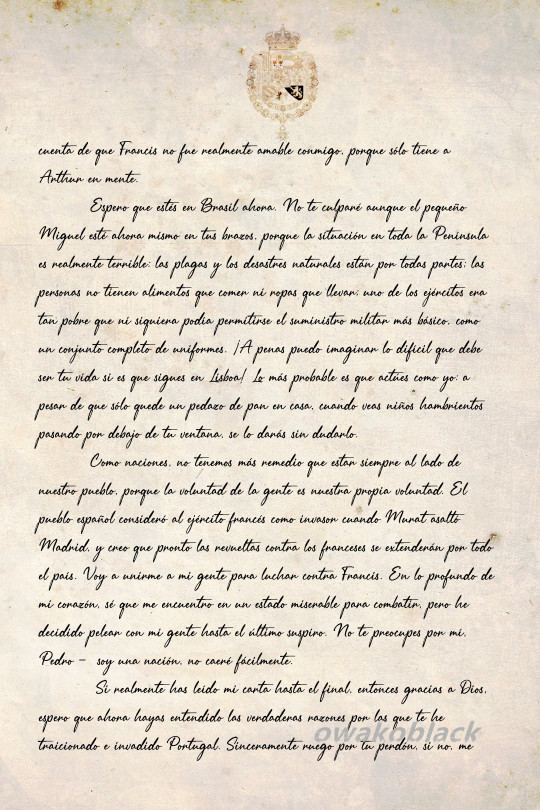 cuenta de que Francis no fue realmente amable conmigo, porque sólo tiene a
Arthur en mente.
Espero que estés en Brasil ahora. No te culparé aunque el pequeño
Miguel esté ahora mismo en tus brazos, porque la situación en toda la Península
es realmente terrible: las plagas y los desastres naturales están por todas partes; las
personas no tienen alimentos que comer ni ropas que llevar; uno de los ejércitos era
tan pobre que ni siquiera podía permitirse el suministro militar más básico, como
un conjunto completo de uniformes. ¡A penas puedo imaginar lo difícil que debe
ser tu vida si es que sigues en Lisboa! Lo más probable es que actúes como yo: a
pesar de que sólo quede un pedazo de pan en casa, cuando veas niños hambrientos
pasando por debajo de tu ventana, se lo darás sin dudarlo.
Como naciones, no tenemos más remedio que estar siempre al lado de
nuestro pueblo, porque la voluntad de la gente es nuestra propia voluntad. El
pueblo español consideró al ejército francés como invasor cuando Murat asaltó
Madrid, y creo que pronto las revueltas contra los franceses se extenderán por todo
el país. Voy a unirme a mi gente para luchar contra Francis. En lo profundo de
mi corazón, sé que me encuentro en un estado miserable para combatir, pero he
decidido pelear con mi gente hasta el último suspiro. No te preocupes por mí,
Pedro – soy una nación, no caeré fácilmente.
Si realmente has leído mi carta hasta el final, entonces gracias a Dios,
espero que ahora hayas entendido las verdaderas razones por las que te he
traicionado e invadido Portugal. Sinceramente ruego por tu perdón, si no, me
owakoblack